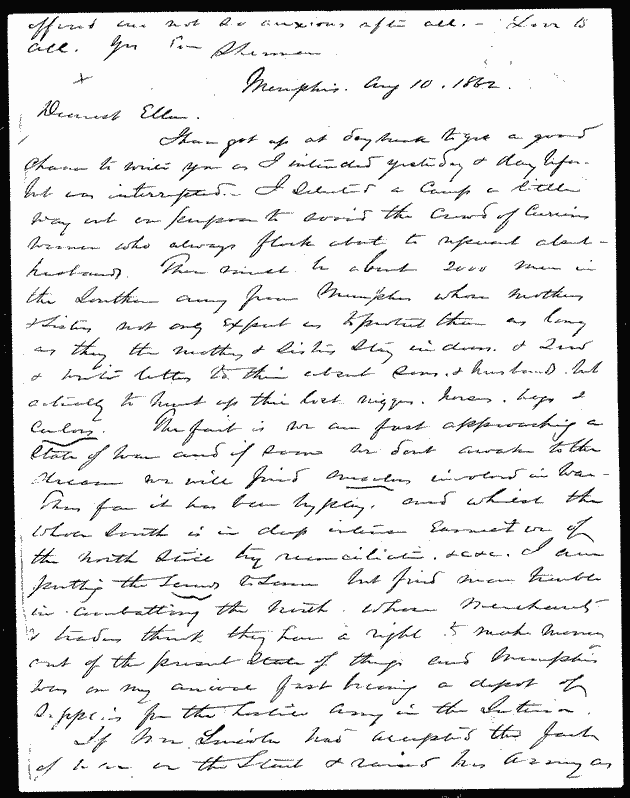 offered are not so anxious after all. - Love to
all. Yrs Sherman
Memphis. Aug 10. 1862.
Dearest Ellen.
I have got up at daybreak to get a good
chance to write you as I intended yesterday & day before
but was interrupted - I selected a Camp a little
way out on purpose to avoid the crowd of Curious
women who always flock about to represent absent
husbands. There must be about 2000 men in
the Southern army from Memphis whose mothers
& sisters not only Expect us to protect them as long
as they the mothers & Sisters Stay indoors. & Send
& write letters to their absent Sons. & husbands but
actually to hunt up their lost niggers. horses. &
The fact is we are fast approaching a
State of war and if soon we dont awake to the
dream we will find ourselves involved in War -
Thus far it has been by play. and whilst the
whole South is in deep intense Earnest we of
the north Still try reconciliation. &c &c. I am
putting the Screws to Some but find more trouble
in combatting the North. whose Merchants
& traders think they have a right to make money
out of the present State of things and Memphis
was on my arrival fast becoming a depot of
Supplies for the hostile Army in the Interior.
If Mr. Lincoln had accepted the fact
of war on the Start & raised his Army as